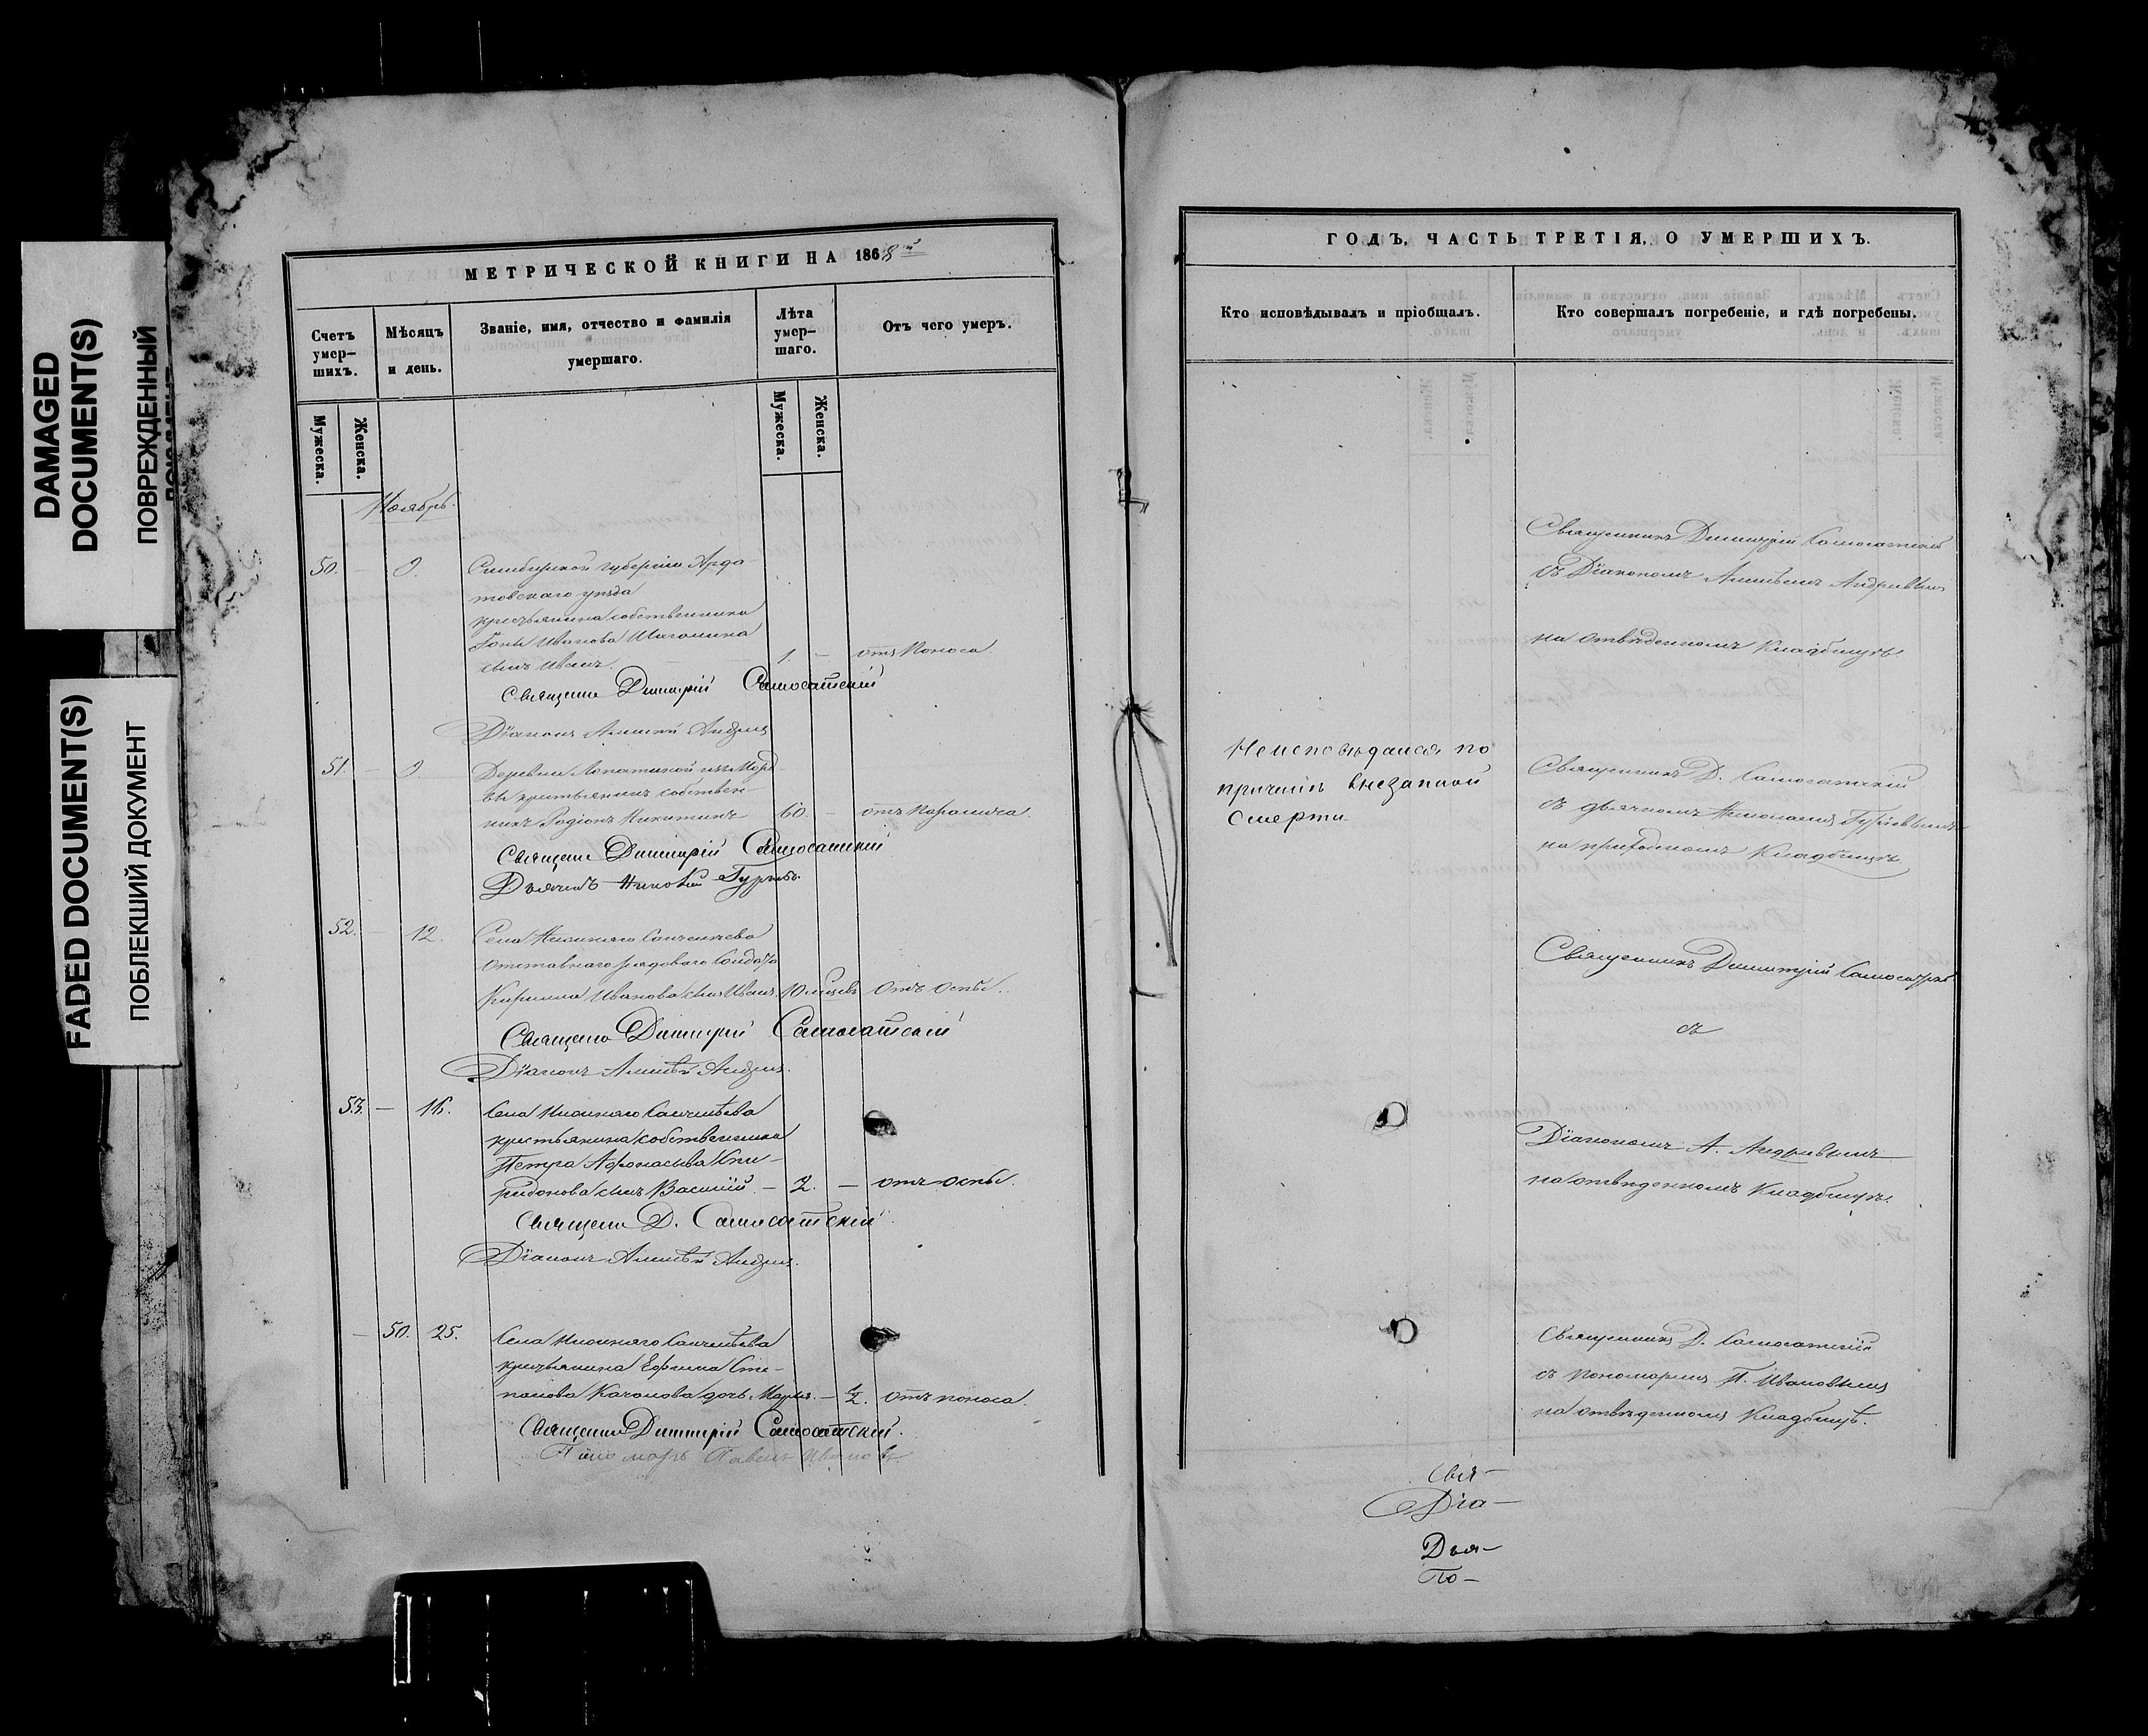 DAMAGED
DOCUMENT(S)
ПОВРЕЖДЕННЫЙ
FADED DOCUMENT(S)
ПОБЛЕКШИЙ ДОКУМЕНТ
МЕТРИЧЕСКОЙ КНИГИ НА 1868й
Счетъ умер-шихъ.
Мѣсяцъ и день.
Званіе, имя, отчество и фамилія умершаго.
Лѣта умер-шаго.
Отъ чего умеръ.
Мужеска.
Женска.
Мужеска.
Женска.
Ноябрь.
50. — 9. Симбирской губерніи Арда
товскаго уѣзда
крестьянина собственника
Иванова
сынъ Иванъ. 1. — отъ поноса
Священ Димитрій Самосатскій
Діаконъ Алексѣй Андреевъ
51. — 9. Деревни Лопатиной изъ Морд-
вы крестьянинъ собствен-
никъ Родіонъ Никитинъ 60. — отъ паралича.
Священ Димитрій Самосатскій
Дьячекъ Гурьевъ.
52. — 12. Села
отставнаго рядоваго солдата
Кирилла Иванова сынъ Иванъ 10 месцев отъ оспы.
Священ Димитрий Самосатскій
Діаконъ Алексѣй Андреевъ.
53. — 16. Села
крестьянина собственника
Петра Афонасьева Спи-
ридонова сынъ Василій. — 2. — отъ оспы.
Священ Д. Самосатскій
Діаконъ Алексѣй Андреевъ.
— 50. 25. Села
крестьянина Ефима Сте-
панова дочь Марья. — ½. отъ поноса.
Священ Димитрій Самосатскій.
Пономарь Павелъ Ивановъ
ГОДЪ, ЧАСТЬ ТРЕТІЯ, О УМЕРШИХЪ.
Кто исповѣдывалъ и пріобщалъ.
Кто совершалъ погребеніе, и гдѣ погребены.
Священникъ Димитрій Самосатскій
съ Діакономъ Алексѣемъ Андреевымъ
на отвѣденномъ кладбищѣ.
Неисповѣдался по
причинѣ внезапной
смерти
Священникъ Д. Самосатскій
съ дьячкомъ Гурьевымъ
на приходскомъ кладбищѣ.
Священникъ Димитрій Самосатскій
съ
Діакономъ А. Андреевымъ
на отвѣденномъ кладбищѣ.
Священникъ Д. Самосатскій
съ пономаремъ П. Ивановымъ
на отвѣденномъ кладбищѣ.
Свя-
Діа-
Дья-
По-